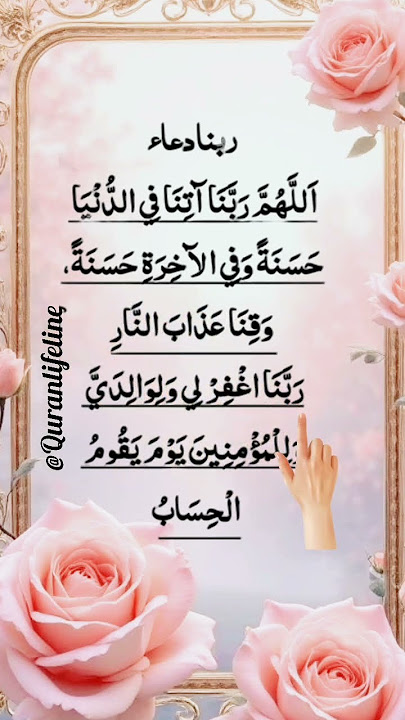 ربنا دعاء
اَللَّهُمَّ رَبَّنَا آتِنَا فِي الدُّنْيَا
حَسَنَةً وَفِي الآخِرَةِ حَسَنَةً،
وَقِنَا عَذَابَ النَّارِ
رَبَّنَا اغْفِرْ لِي وَلِوَالِدَيَّ
وَلِلْمُؤْمِنِينَ يَوْمَ يَقُومُ
الْحِسَابُ
@Quranlifeline